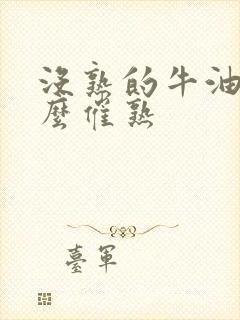 没熟的牛油
麼催熟
臺軍